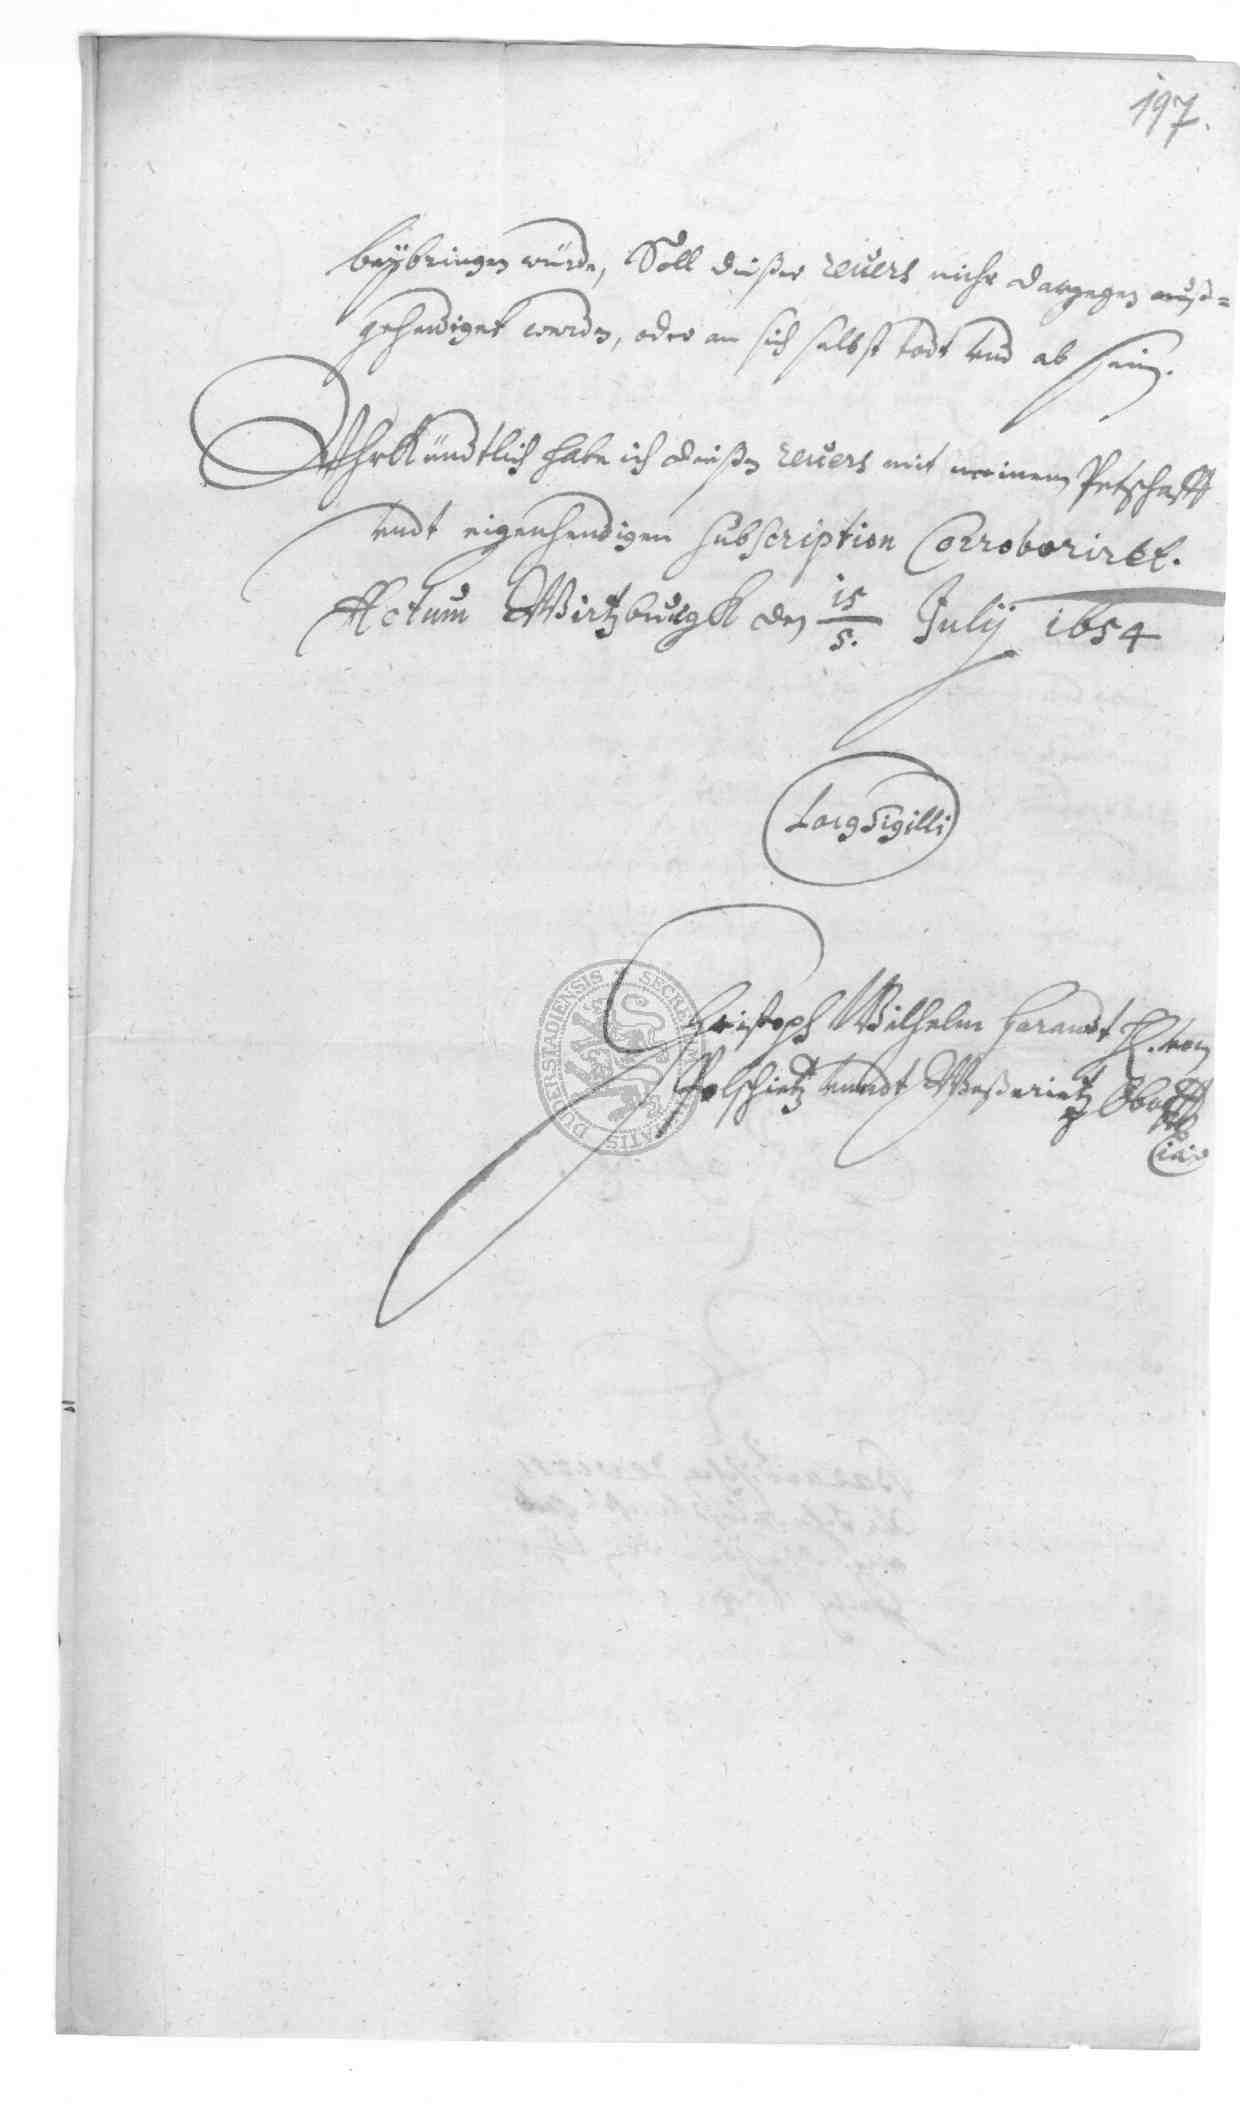 197.
beÿbringen würde, Soll dießer revers mihr dargegen auß=
gehendiget werden, oder an sich selbst todt vnd ab sein.
Vhrkündtlich habe ich dießen revers mit meinem Petschafft
vndt eigenhendigen subscription Corroborirtt.
Actum Wirtzburgk den 15/5. Julÿ 1654
Locg Sigilli
Christoph Wilhelm Harandt H. von
Polschietz vnndt Weßerietz Obrist
SECRET DUERSTADIENSIS